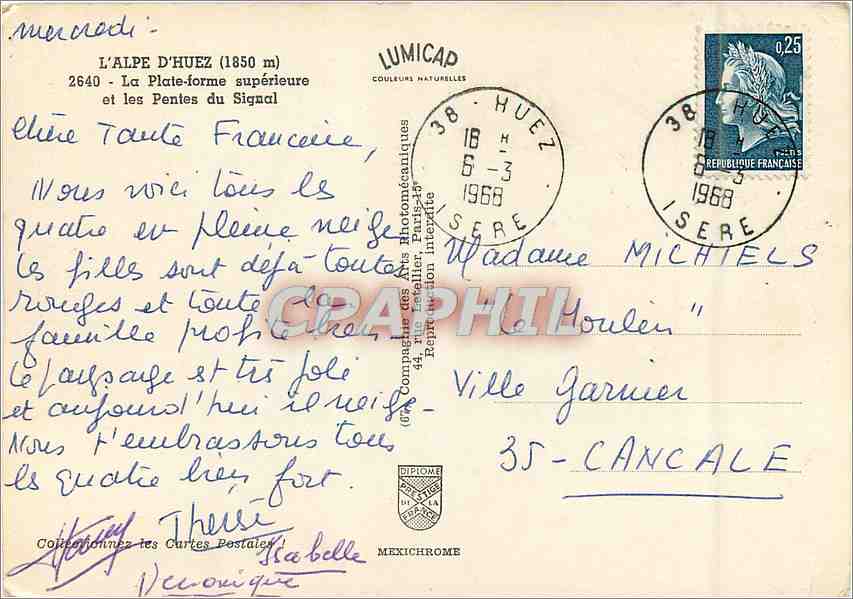 mercredi -
L'ALPE D'HUEZ (1850 m)
2640 - La Plate-forme supérieure
et les Pentes du Signal
Chère Tante Francine,
Nous voici tous les
quatre en pleine neige
les filles sont déjà toutes
rouges et toute la
famille profite bien -
le paysage est très joli
et aujourd'hui il neige -
Nous t'embrassons tous
les quatre bien fort.
Thérèse
Isabelle
Véronique
Collectionnez les Cartes Postales !
LUMICAP
COULEURS NATURELLES
Compagnie des Arts Photomécaniques
44, rue Letellier, Paris-15e
Reproduction interdite
CPAPHIL
DIPLOME
PRESTIGE
DE LA
FRANCE
MEXICHROME
38 - HUEZ
18 H
6 - 3
1968
ISERE
0,25
POSTES
REPUBLIQUE FRANÇAISE
38 - HUEZ
18 H
6 - 3
1968
ISERE
Madame MICHIELS
"Le Moulin"
Ville Garnier
35 - CANCALE